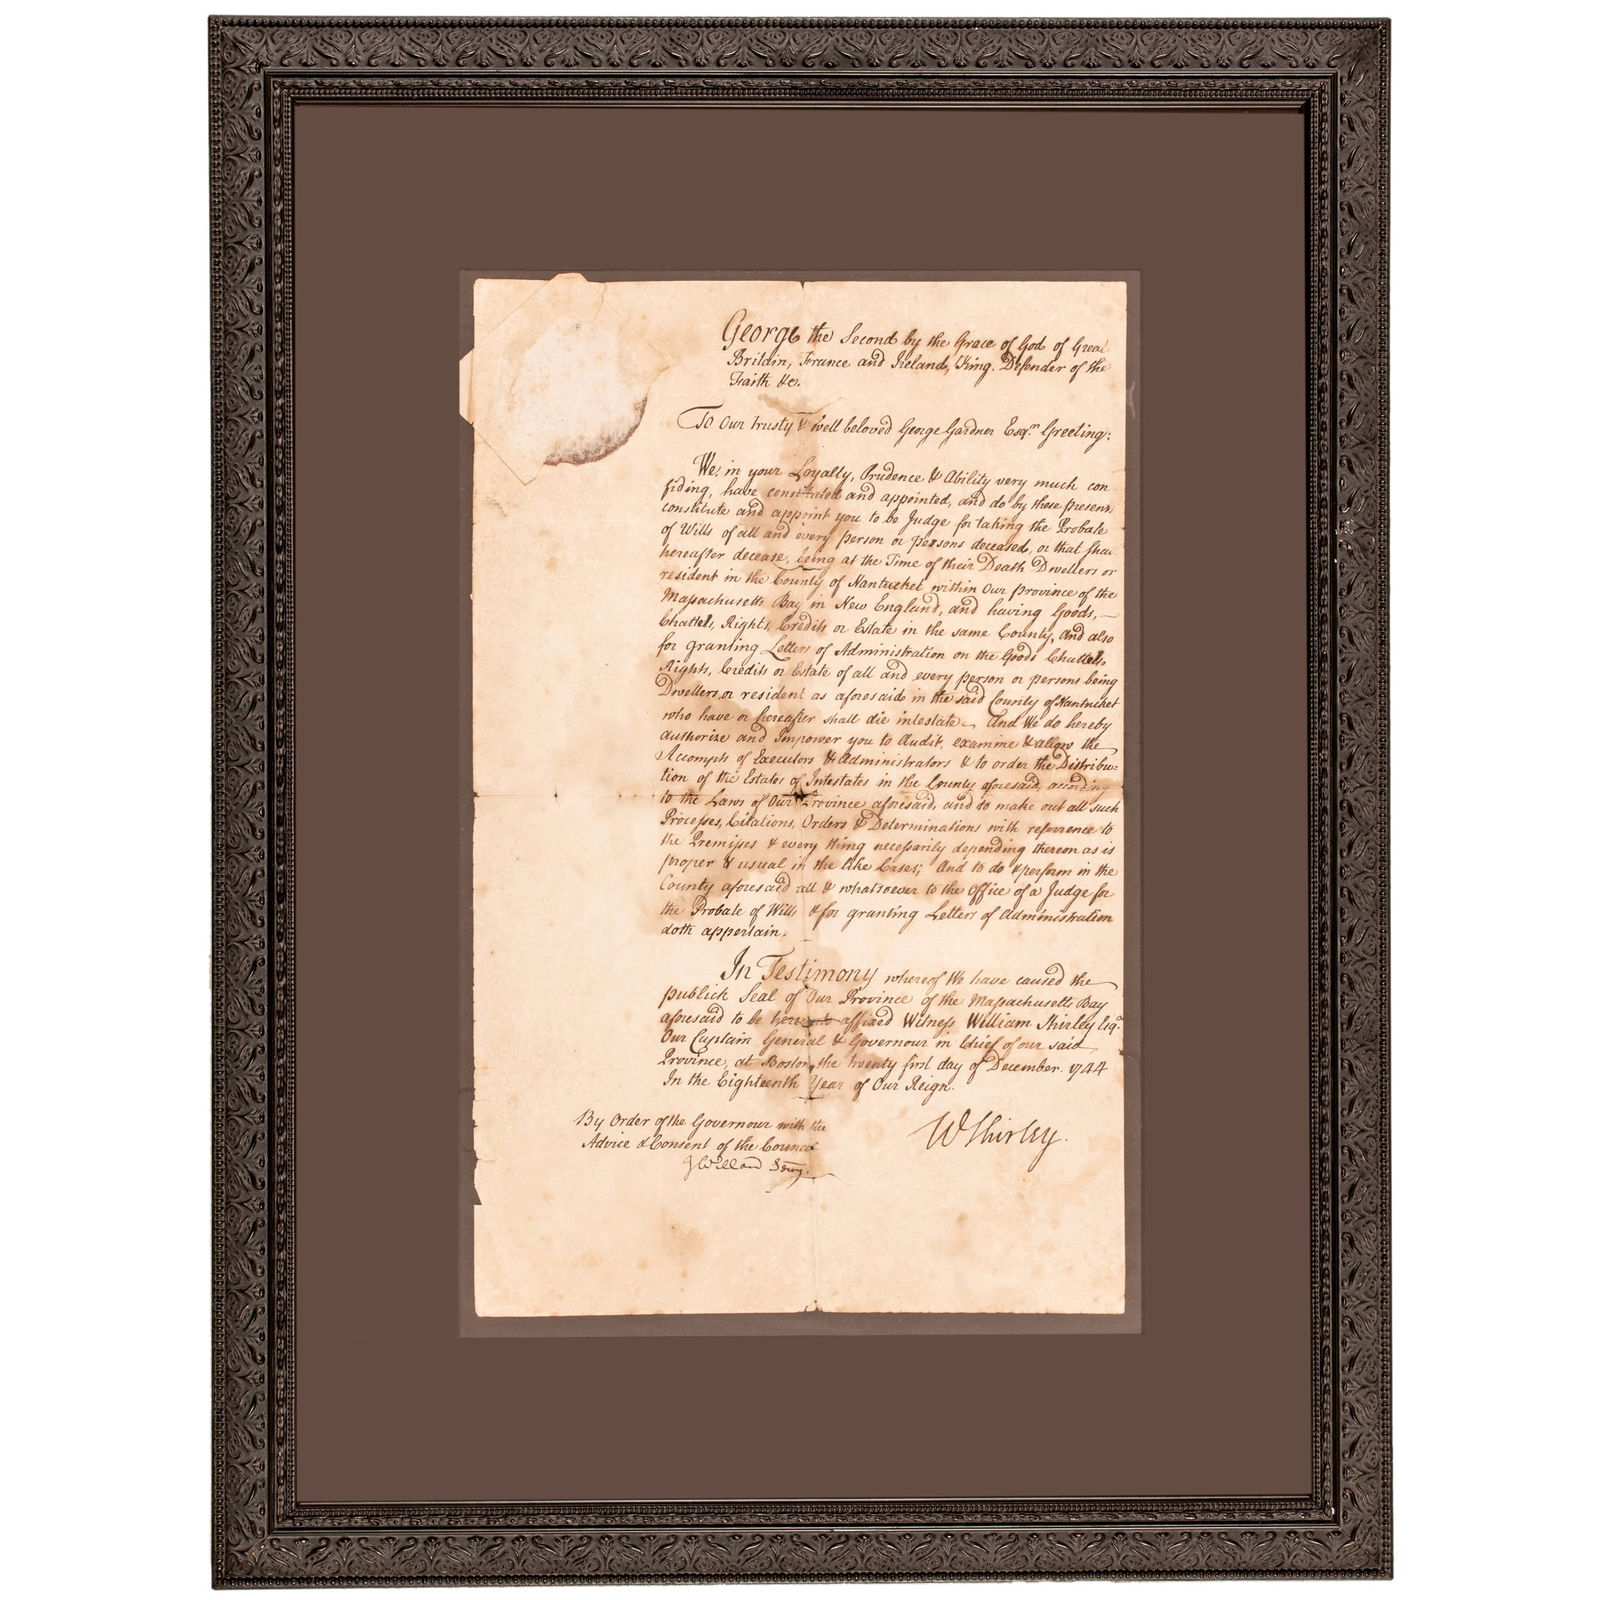 George the Second by the Grace of God of Great
Britain, France and Ireland, King. Defender of the
Faith &c.
To Our trusty & well beloved George Gardner Esqr. Greeting;
We, in your Loyalty, Prudence & Ability very much con
fiding, have constituted and appointed, and do by these presents
constitute and appoint you to be Judge for taking the Probate
of Wills of all and every person or persons deceased, or that shal
hereafter decease, being at the Time of their Death Dwellers or
resident in the County of Nantucket within Our province of the
Massachusetts Bay in New England, and having Goods,
Chattels, Rights, Credits or Estate in the same County, And also
for granting Letters of Administration on the Goods Chattels,
Rights, Credits or Estate of all and every person or persons being
Dwellers, or resident as aforesaid in the said County of Nantucket
who have or hereafter shall die intestate. And We do hereby
authorize and Impower you to Audit, examine & allow the
Accompts of Executors & Administrators & to order the Distribu-
tion of the Estates of Intestates in the County aforesaid, according
to the Laws of Our Province aforesaid, and to make out all such
Processes, Citations, Orders & Determinations with reference to
the Premises & every thing necessarily depending thereon as is
proper & usual in the like Cases; And to do & perform in the
County aforesaid all & whatsoever to the Office of a Judge for
the Probate of Wills & for granting Letters of Administration
doth appertain.
In Testimony whereof We have caused the
publick Seal of Our Province of the Massachusetts Bay
aforesaid to be hereunto affixed Witness William Shirley Esqr.
Our Captain General & Governour in Chief of our said
Province, at Boston the twenty first day of December. 1744
In the Eighteenth Year of Our Reign.
By Order of the Governour with the
Advice & Consent of the Council
J Willard Secry.
W Shirley.